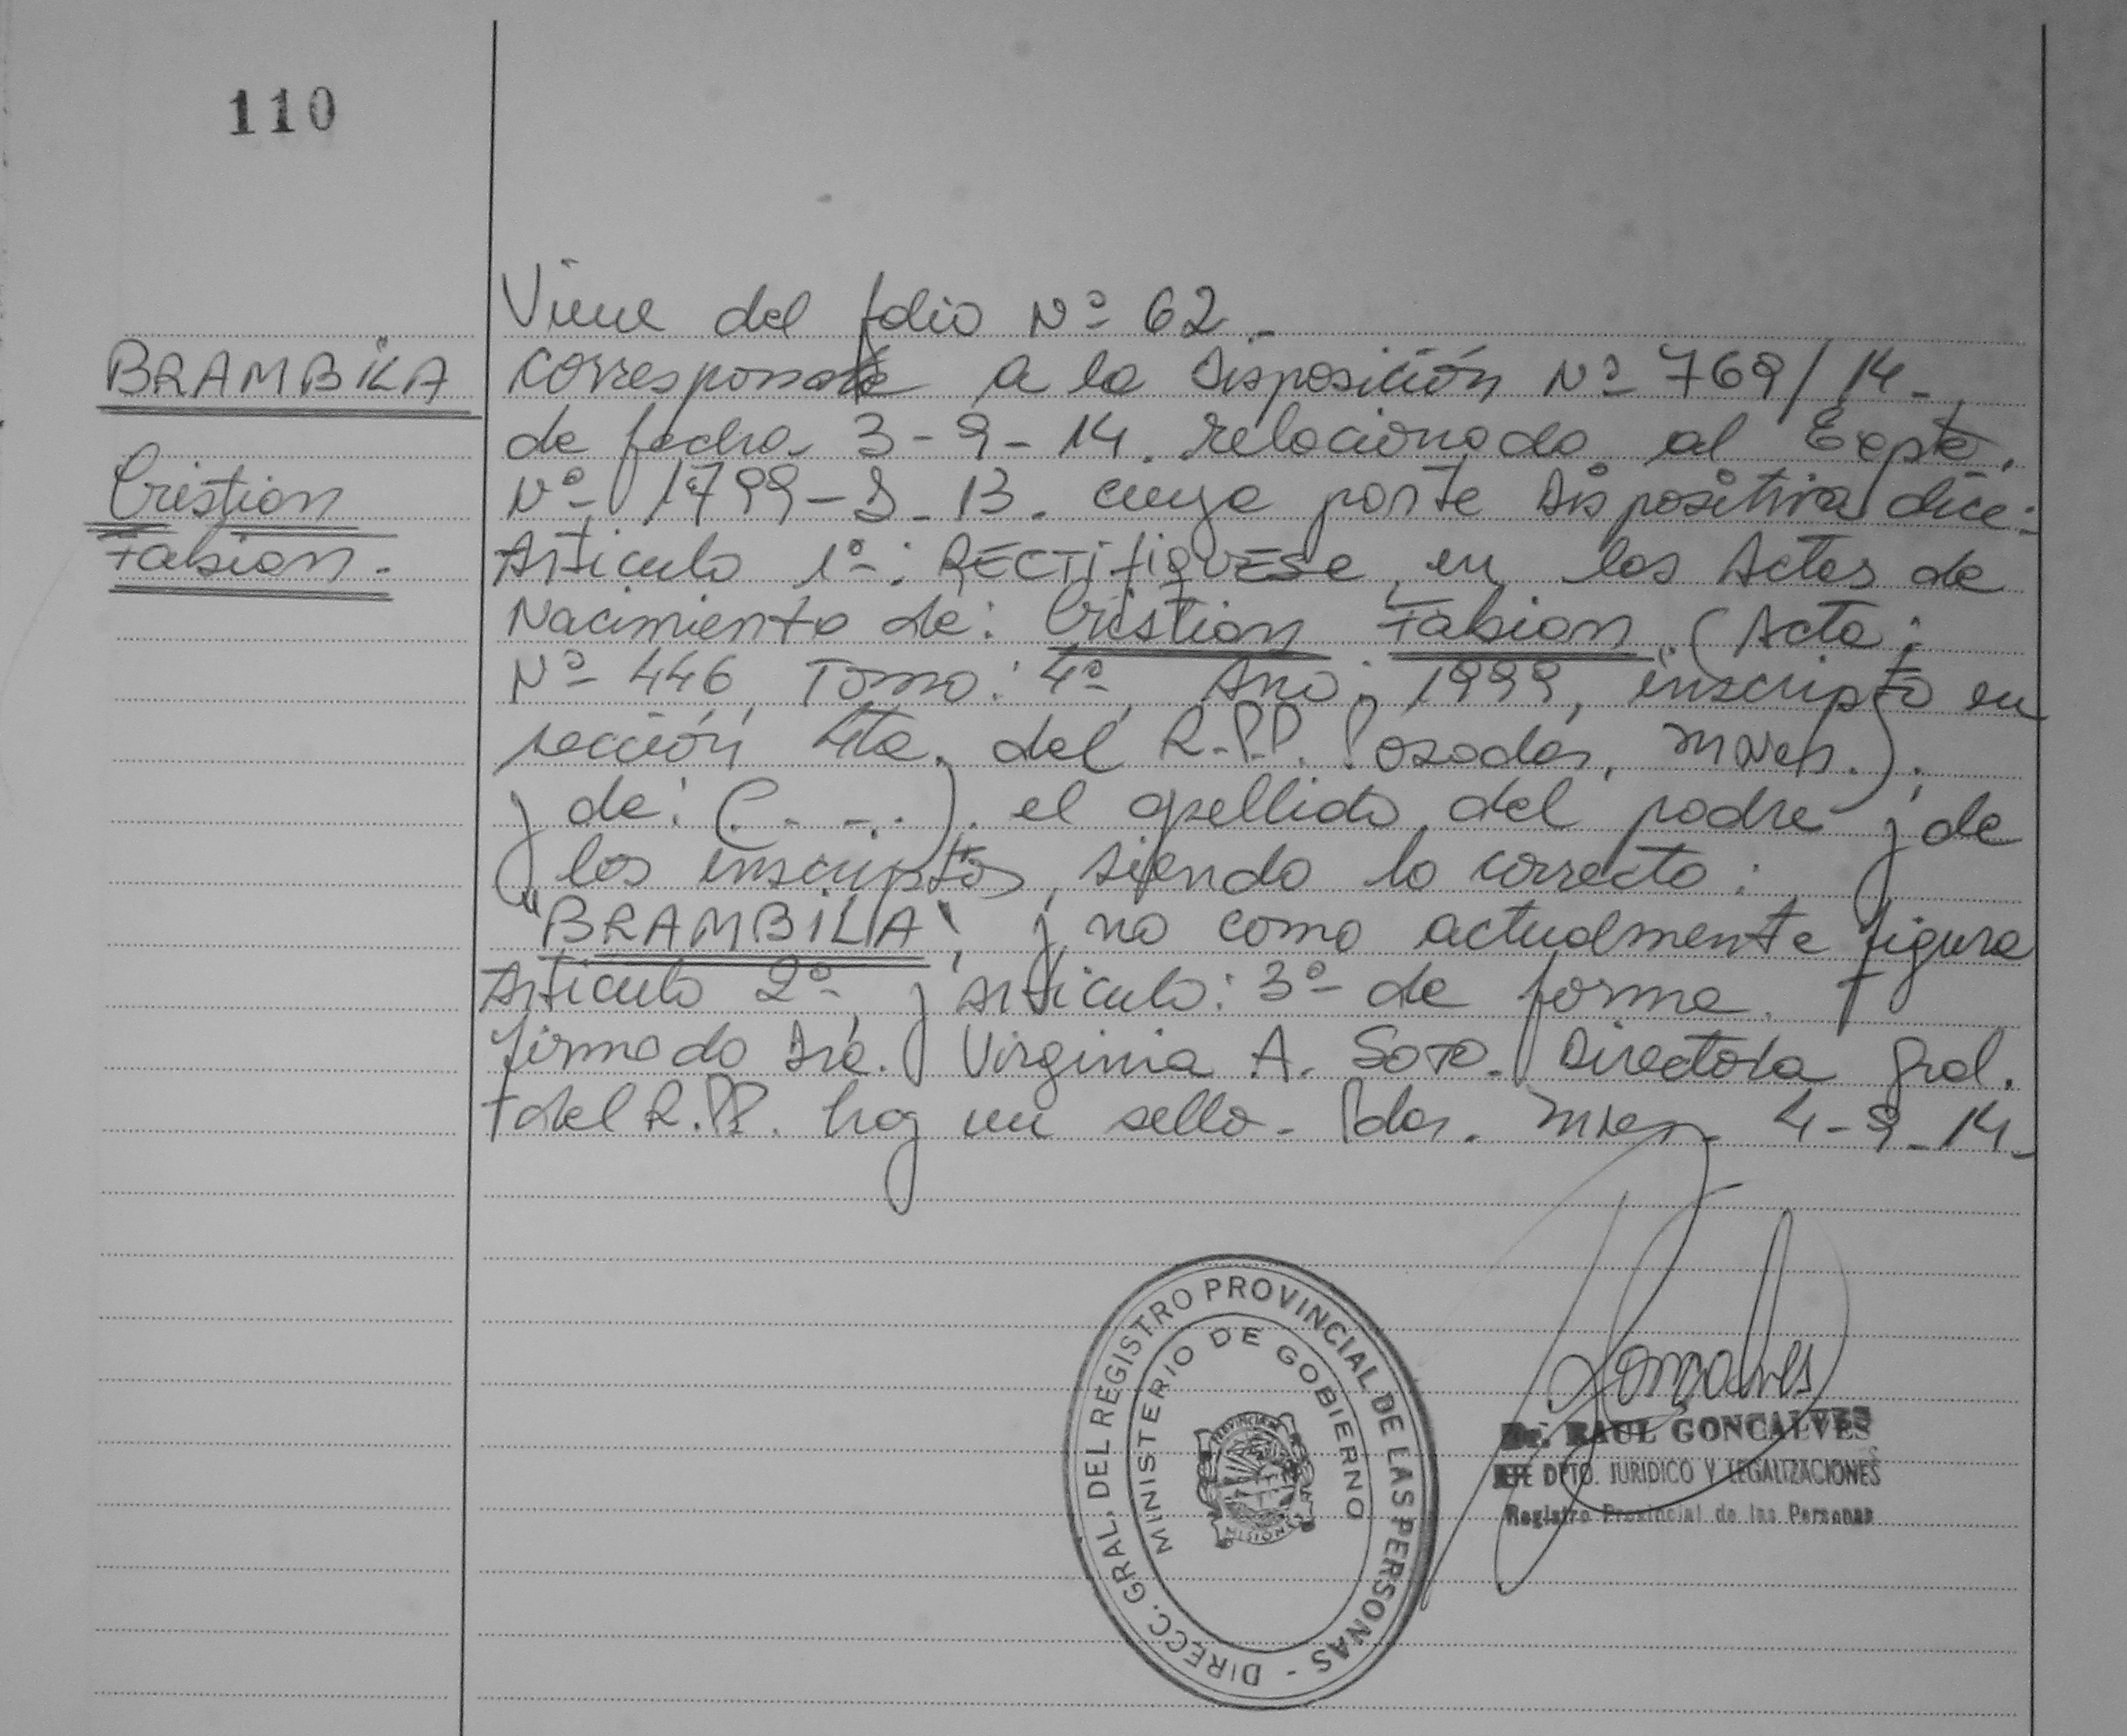 110
BRAMBILA
Cristian
Fabian.-
Viene del folio Nº 62.-
corresponde a la Disposición Nº 769/14.-
de fecha 3-9-14. relacionado al Expte.
Nº 1799-S-13. cuya parte Dispositiva dice:
Articulo 1º: RECTifiquese, en las Actas de
Nacimiento de: Cristian Fabian (Acta:
Nº 446, Tomo: 4º, Año: 1999, inscripto en
sección 4ta. del R.P.P. Posadas, Mnes.).
y de: (. - - . .). el apellido del padre y de
los inscriptos, siendo lo correcto:
"BRAMBILA", y no como actualmente figura
Articulo 2º y Articulo: 3º de forma.
firmado Dra. Virginia A. Soto. Directora Gral.
del R.P.P. hay un sello - Pdas. Mnes. 4-9-14.
DIRECC. GRAL. DEL REGISTRO PROVINCIAL DE LAS PERSONAS -
MINISTERIO DE GOBIERNO
PROVINCIA
MISIONES
Gonçalves
Dr. RAUL GONCALVES
JEFE DPTO. JURIDICO Y LEGALIZACIONES
Registro Provincial de las Personas